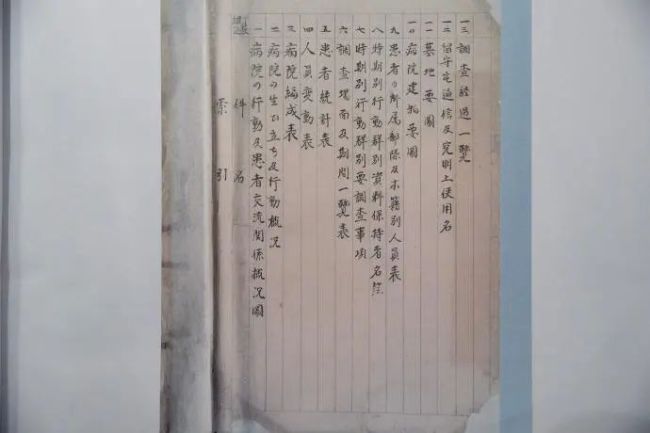 索引
件名
一 病院の行動及患者交流関係概況図
二 病院の生ひ立ち及行動概況
三 病院編成表
四 人員変動表
五 患者統計表
六 調査場面及期間一覽表
七 時期別行動群別要調査事項
八 時期別行動群別資料保持者名簿
九 患者の所属部隊及本籍別人員表
一〇 病院建物要図
一一 墓地要図
一二 留守宅通信及究明上使用名
一三 調査経過一覽